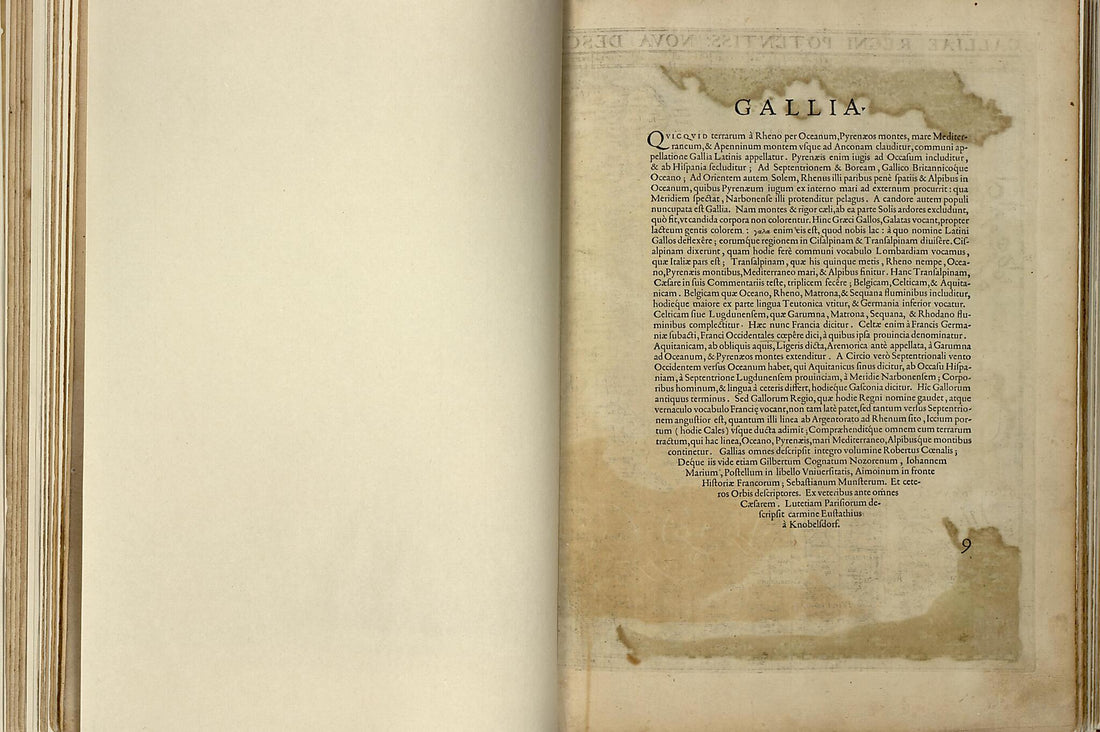 GALLIA.
QVICQVID terrarum à Rheno per Oceanum, Pyrenæos montes, mare Mediter-
raneum, & Apenninum montem vſque ad Anconam clauditur, communi ap-
pellatione Gallia Latinis appellatur. Pyrenæis enim iugis ad Occaſum includitur,
& ab Hiſpania ſecluditur; Ad Septentrionem & Boream, Gallico Britannicoque
Oceano; Ad Orientem autem Solem, Rhenus illi paribus penè ſpatiis & Alpibus in
Oceanum, quibus Pyrenæum iugum ex interno mari ad externum procurrit: qua
Meridiem ſpectat, Narbonenſe illi protenditur pelagus. A candore autem populi
nuncupata eſt Gallia. Nam montes & rigor cæli, ab ea parte Solis ardores excludunt,
quò fit, vt candida corpora non colorentur. Hinc Græci Gallos, Galatas vocant, propter
lacteum gentis colorem: γαλα enim eis eſt, quod nobis lac: à quo nomine Latini
Gallos deflexêre; eorumque regionem in Ciſalpinam & Tranſalpinam diuiſêre. Ciſ-
alpinam dixerunt, quam hodie ferè communi vocabulo Lombardiam vocamus,
quæ Italiæ pars eſt; Tranſalpinam, quæ his quinque metis, Rheno nempe, Ocea-
no, Pyrenæis montibus, Mediterraneo mari, & Alpibus finitur. Hanc Tranſalpinam,
Cæſare in ſuis Commentariis teſte, triplicem fecêre; Belgicam, Celticam, & Aquita-
nicam. Belgicam quæ Oceano, Rheno, Matrona, & Sequana fluminibus includitur,
hodieque maiore ex parte lingua Teutonica vtitur, & Germania inferior vocatur.
Celticam ſiue Lugdunenſem, quæ Garumna, Matrona, Sequana, & Rhodano flu-
minibus complectitur. Hæc nunc Francia dicitur. Celtæ enim à Francis Germa-
niæ ſubacti, Franci Occidentales cœpêre dici, à quibus ipſa prouincia denominatur.
Aquitanicam, ab obliquis aquis, Ligeris dicta, Aremorica antè appellata, à Garumna
ad Oceanum, & Pyrenæos montes extenditur. A Circio verò Septentrionali vento
Occidentem verſus Oceanum habet, qui Aquitanicus ſinus dicitur, ab Occaſu Hiſpa-
niam, à Septentrione Lugdunenſem prouinciam, à Meridie Narbonenſem; Corpo-
ribus hominum, & lingua à ceteris differt, hodieque Gaſconia dicitur. Hic Gallorum
antiquus terminus. Sed Gallorum Regio, quæ hodie Regni nomine gaudet, atque
vernaculo vocabulo Francię vocant, non tam latè patet, ſed tantum verſus Septentrio-
nem anguſtior eſt, quantum illi linea ab Argentorato ad Rhenum ſito, Iccium por-
tum (hodie Cales) vſque ducta adimit; Compræhenditque omnem eum terrarum
tractum, qui hac linea, Oceano, Pyrenæis, mari Mediterraneo, Alpibusque montibus
continetur. Gallias omnes deſcripſit integro volumine Robertus Cœnalis;
Deque iis vide etiam Gilbertum Cognatum Nozorenum, Iohannem
Marium, Poſtellum in libello Vniuerſitatis, Aimoinum in fronte
Hiſtoriæ Francorum; Sebaſtianum Munſterum. Et cete-
ros Orbis deſcriptores. Ex veteribus ante omnes
Cæſarem. Lutetiam Pariſiorum de-
ſcripſit carmine Euſtathius
à Knobelſdorf.
9